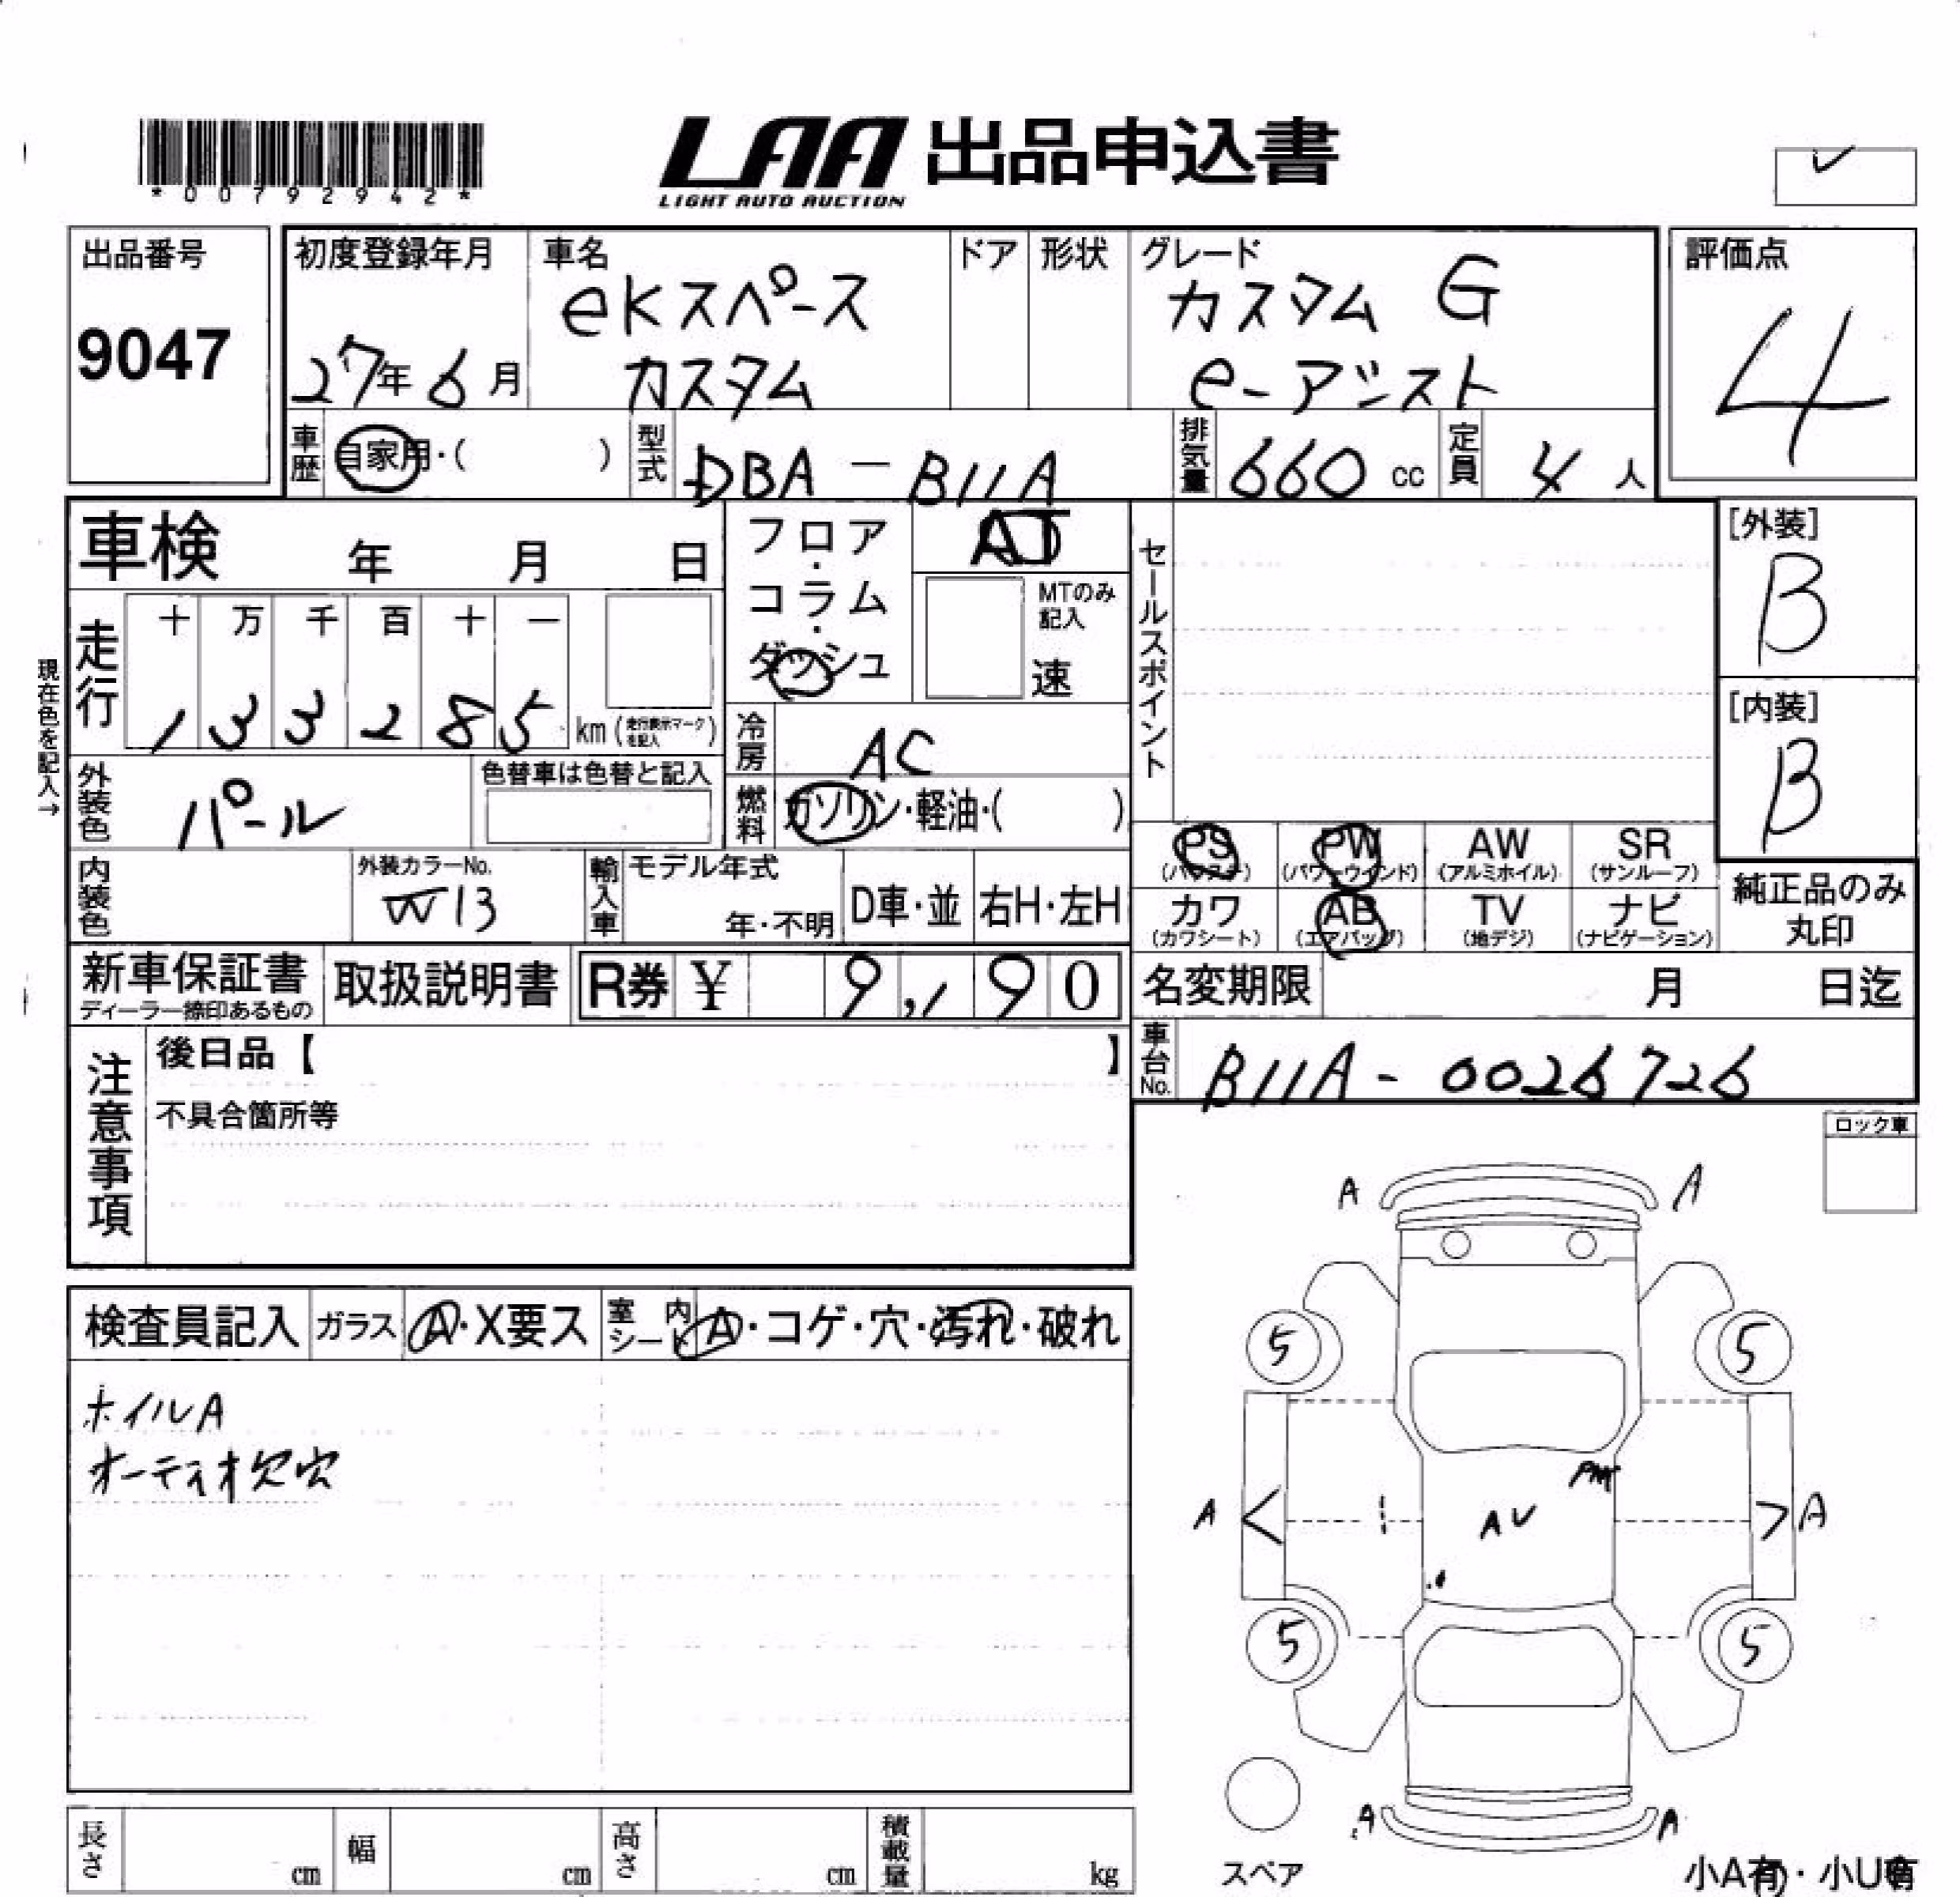 *00792942*
LAA 出品申込書
LIGHT AUTO AUCTION
出品番号
9047
初度登録年月
27年6月
車名
eKスペース
カスタム
ドア
形状
グレード
カスタム G
e-アシスト
評価点
4
車歴
自家用・( )
型式
DBA-B11A
排気量
660 cc
定員
4 人
車検 年 月 日
フロア・コラム・ダッシュ
AT
MTのみ記入
速
セールスポイント
[外装]
B
[内装]
B
現在色を記入→
走行
十 万 千 百 十 一
1 3 3 2 8 5 km (走行表示マークを記入)
冷房
AC
外装色
パール
色替車は色替と記入
燃料
ガソリン・軽油・( )
PS (パワステ)
PW (パワーウインド)
AW (アルミホイル)
SR (サンルーフ)
カワ (カワシート)
AB (エアバッグ)
TV (地デジ)
ナビ (ナビゲーション)
純正品のみ
丸印
内装色
外装カラーNo.
W13
輸入車
モデル年式
年・不明
D車・並
右H・左H
新車保証書
ディーラー捺印あるもの
取扱説明書
R券 ¥ 9,190
名変期限 月 日迄
車台No.
B11A-0026726
注意事項
後日品【 】
不具合箇所等
ロック車
検査員記入
ガラス
A・X要ス
室内シート
A・コゲ・穴・汚れ・破れ
ホイルA
オーディオ欠穴
A A
5 5
A A
AU
5 5
A A
スペア
長さ cm
幅 cm
高さ cm
積載量 kg
小A有・小U有